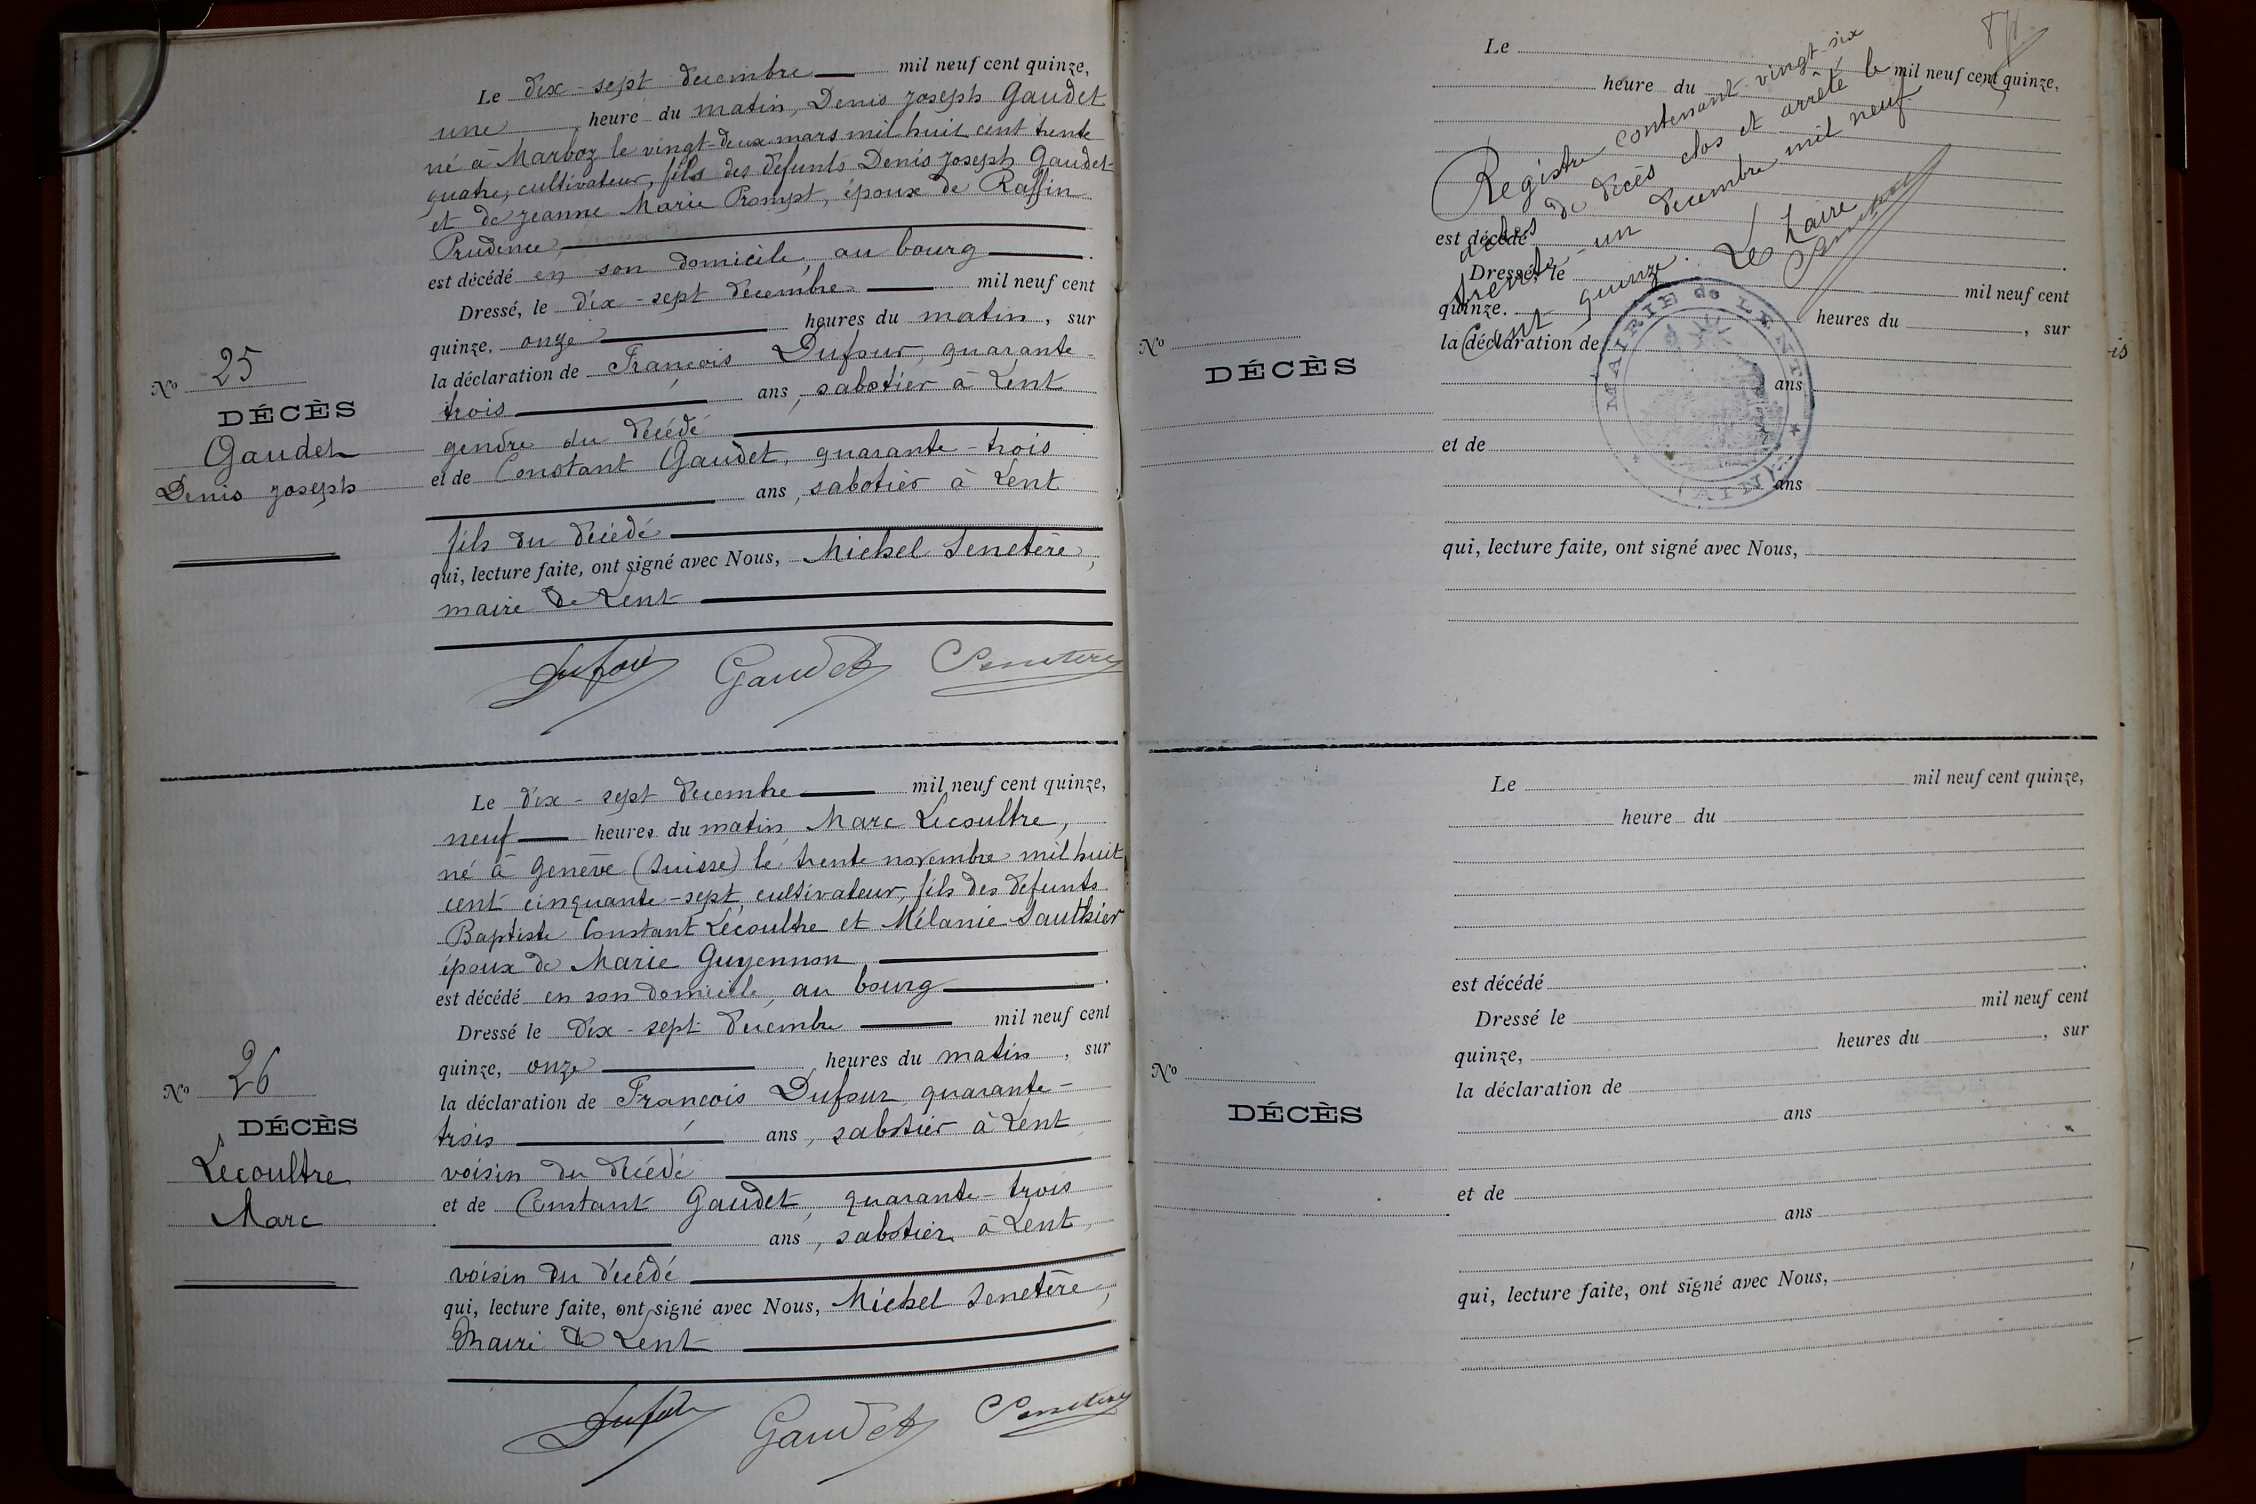 Le dix-sept decembre mil neuf cent quinze,
une heure du matin, Denis Joseph Gaudet
né à Marboz le vingt-deux mars mil huit cent trente
quatre, cultivateur, fils des défunts Denis Joseph Gaudet
et de Jeanne Marie Prompt, époux de Raffin
Prudence,
est décédé en son domicile, au bourg.
Dressé, le dix-sept decembre mil neuf cent
quinze, onze heures du matin, sur
la déclaration de François Dufour, quarante-
trois ans, sabotier à Lent
gendre du décédé
et de Constant Gaudet, quarante-trois
ans, sabotier à Lent
fils du décédé
qui, lecture faite, ont signé avec Nous, Michel Senetère,
maire de Lent
Dufour Gaudet Senetère
No 25
DÉCÈS
Gaudet
Denis Joseph
Le dix-sept decembre mil neuf cent quinze,
neuf heures du matin Marc Lecoultre,
né à Genève (Suisse) le trente novembre mil huit
cent cinquante-sept, cultivateur, fils des defunts
Baptiste Constant Lecoultre et Mélanie Sauthier
époux de Marie Guyennon
est décédé en son domicile, au bourg.
Dressé le dix-sept decembre mil neuf cent
quinze, onze heures du matin, sur
la déclaration de François Dufour quarante-
trois ans, sabotier à Lent
voisin du décédé
et de Constant Gaudet, quarante-trois
ans, sabotier à Lent,
voisin du décédé
qui, lecture faite, ont signé avec Nous, Michel Senetère,
Maire de Lent
Dufour Gaudet Senetère
No 26
DÉCÈS
Lecoultre
Marc
Le mil neuf cent quinze,
heure du
Registre contenant vingt-six
actes de décès clos et arrêté le
trente-un decembre mil neuf
cent quinze.
Le Maire
Senetère
est décédé
Dressé, le mil neuf cent
quinze. heures du , sur
la déclaration de
ans
et de
ans
qui, lecture faite, ont signé avec Nous,
MAIRIE de LENT
(AIN)
No
DÉCÈS
is
Le mil neuf cent quinze,
heure du
est décédé
Dressé le mil neuf cent
quinze, heures du , sur
la déclaration de
ans
et de
ans
qui, lecture faite, ont signé avec Nous,
No
DÉCÈS